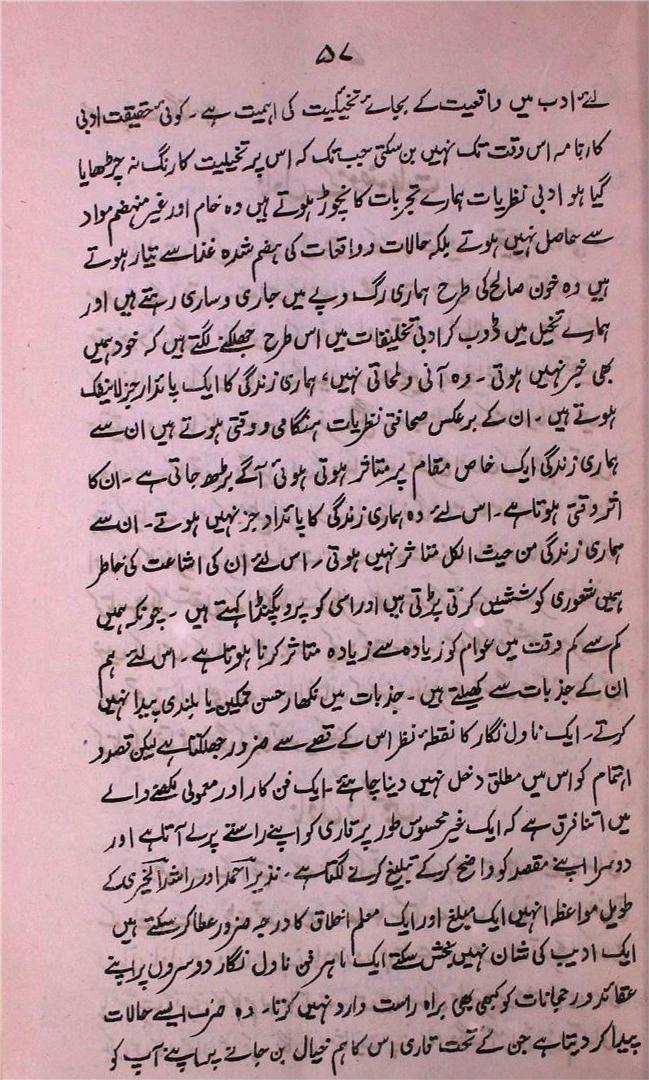 ۵۷
لئے ادب میں واقعیت کے بجائے تخیلیت کی اہمیت ہے۔ کوئی حقیقت ادبی
کارنامہ اس وقت تک نہیں بن سکتی جب تک کہ اس پر تخیلیت کا رنگ نہ چڑھایا
گیا ہو ادبی نظریات ہمارے تجربات کا نچوڑ ہوتے ہیں وہ خام اور غیر منہضم مواد
سے حاصل نہیں ہوتے بلکہ حالات و واقعات کی ہضم شدہ غذا سے تیار ہوتے
ہیں وہ خون صالح کی طرح ہماری رگ و پے میں جاری و ساری رہتے ہیں اور
ہمارے تخیل میں ڈوب کر ادبی تخلیقات میں اس طرح جھلکنے لگتے ہیں کہ خود ہمیں
بھی خبر نہیں ہوتی۔ وہ آنی و لمحاتی نہیں، ہماری زندگی کا ایک پائدار جز لاینفک
ہوتے ہیں۔ ان کے برعکس صحافتی نظریات ہنگامی و وقتی ہوتے ہیں ان سے
ہماری زندگی ایک خاص مقام پر متاثر ہوتی ہوئی آگے بڑھ جاتی ہے۔ ان کا
اثر وقتی ہوتا ہے۔ اس لئے وہ ہماری زندگی کا پائدار جز نہیں ہوتے۔ ان سے
ہماری زندگی من حیث الکل متاثر نہیں ہوتی۔ اس لئے ان کی اشاعت کی خاطر
ہمیں شعوری کوششیں کرنی پڑتی ہیں اور اسی کو پروپگنڈا کہتے ہیں۔ چونکہ ہمیں
کم سے کم وقت میں عوام کو زیادہ سے زیادہ متاثر کرنا ہوتا ہے۔ اس لئے ہم
ان کے جذبات سے کھیلتے ہیں۔ جذبات میں نکھار حسن تمکین یا بلندی پیدا نہیں
کرتے۔ ایک ناول نگار کا نقطۂ نظر اس کے قصے سے ضرور جھلکتا ہے لیکن قصد و
اہتمام کو اس میں مطلق دخل نہیں دینا چاہئے۔ ایک فن کار اور معمولی لکھنے والے
میں اتنا فرق ہے کہ ایک غیر محسوس طور پر قاری کو اپنے راستے پر لے آتا ہے اور
دوسرا اپنے مقصد کو واضح کر کے تبلیغ کرنے لگتا ہے۔ نذیر احمد اور راشد الخیری کے
طویل مواعظ انہیں ایک مبلغ اور ایک معلم اخلاق کا درجہ ضرور عطا کر سکتے ہیں
ایک ادیب کی شان نہیں بخش سکتے ایک ماہر فن ناول نگار دوسروں پر اپنے
عقائد و رجحانات کو کبھی بھی براہ راست وارد نہیں کرتا۔ وہ صرف ایسے حالات
پیدا کر دیتا ہے جن کے تحت قاری اس کا ہم خیال بن جانے پر اپنے آپ کو